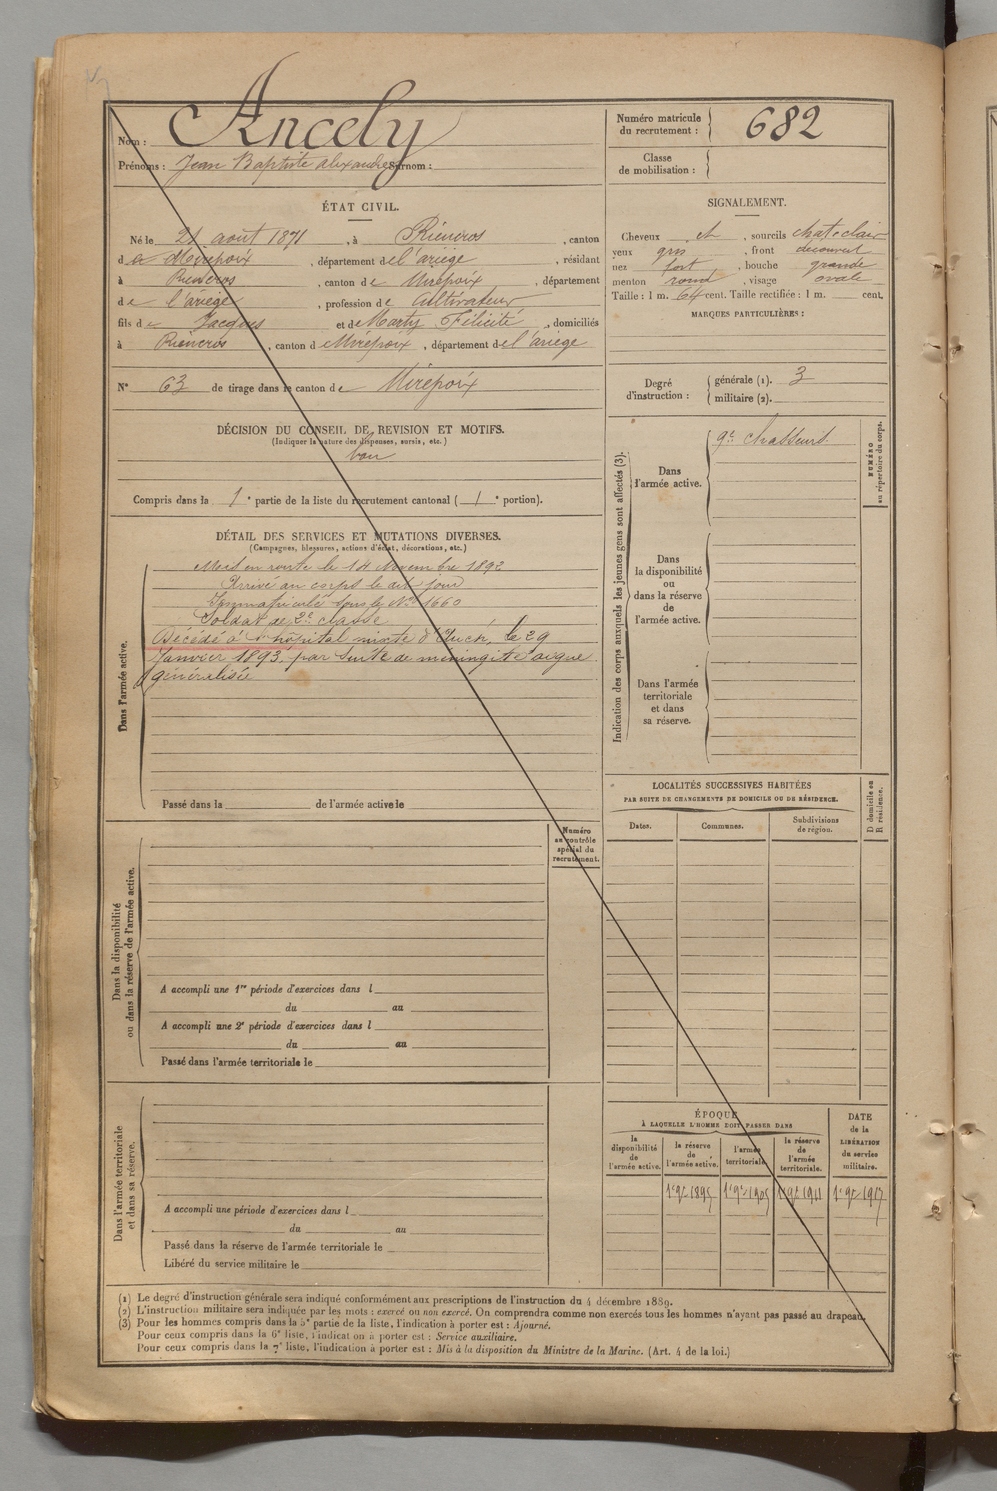 Nom : Ancely
Prénoms : Jean Baptiste Alexandre Surnom :
ÉTAT CIVIL.
Né le 21 août 1871, à Rieucros, canton
de Mirepoix, département de l'ariège, résidant
à Rieucros, canton de Mirepoix, département
de l'ariège, profession de Cultivateur
fils de Jacques et de Marty Félicité, domiciliés
à Rieucros, canton de Mirepoix, département de l'ariège
N° 63 de tirage dans le canton de Mirepoix
DÉCISION DU CONSEIL DE REVISION ET MOTIFS.
(Indiquer la nature des dispenses, sursis, etc.)
bon
Compris dans la 1e partie de la liste du recrutement cantonal (1e portion).
DÉTAIL DES SERVICES ET MUTATIONS DIVERSES.
(Campagnes, blessures, actions d'éclat, décorations, etc.)
Dans l'armée active.
Mis en route le 14 Novembre 1892
Arrivé au corps le dit jour
Immatriculé sous le No 1660
Soldat de 2e classe
Décédé à l'hôpital mixte d'Auch, le 29
Janvier 1893, par suite de méningite aigue
généralisée
Passé dans la de l'armée active le
Numéro
au contrôle
spécial du
recrutement.
Dans la disponibilité
ou dans la réserve de l'armée active.
A accompli une 1re période d'exercices dans l
du au
A accompli une 2e période d'exercices dans l
du au
Passé dans l'armée territoriale le
Dans l'armée territoriale
et dans sa réserve.
A accompli une période d'exercices dans l
du au
Passé dans la réserve de l'armée territoriale le
Libéré du service militaire le
Numéro matricule
du recrutement : 682
Classe
de mobilisation :
SIGNALEMENT.
Cheveux et, sourcils chat. clair
yeux gris, front découvert
nez fort, bouche grande
menton rond, visage ovale
Taille : 1 m. 64 cent. Taille rectifiée : 1 m. cent.
MARQUES PARTICULIÈRES :
Degré
d'instruction :
générale (1). 3
militaire (2).
Indication des corps auxquels les jeunes gens sont affectés (3).
NUMÉRO
au répertoire du corps.
Dans
l'armée active.
9e chasseurs.
Dans
la disponibilité
ou
dans la réserve
de
l'armée active.
Dans l'armée
territoriale
et dans
sa réserve.
LOCALITÉS SUCCESSIVES HABITÉES
PAR SUITE DE CHANGEMENTS DE DOMICILE OU DE RÉSIDENCE.
Dates. Communes. Subdivisions
de région.
D domicile ou
R résidence.
ÉPOQUE
À LAQUELLE L'HOMME DOIT PASSER DANS
la
disponibilité
de
l'armée active.
la réserve
de
l'armée active.
l'armée
territoriale.
la réserve
de
l'armée
territoriale.
DATE
de la
LIBÉRATION
du service
militaire.
1er 9bre 1895 1er 9bre 1905 1er 9bre 1911 1er 9bre 1917
(1) Le degré d'instruction générale sera indiqué conformément aux prescriptions de l'instruction du 4 décembre 1889.
(2) L'instruction militaire sera indiquée par les mots : exercé ou non exercé. On comprendra comme non exercés tous les hommes n'ayant pas passé au drapeau.
(3) Pour les hommes compris dans la 5e partie de la liste, l'indication à porter est : Ajourné.
Pour ceux compris dans la 6e liste, l'indication à porter est : Service auxiliaire.
Pour ceux compris dans la 7e liste, l'indication à porter est : Mis à la disposition du Ministre de la Marine. (Art. 4 de la loi.)